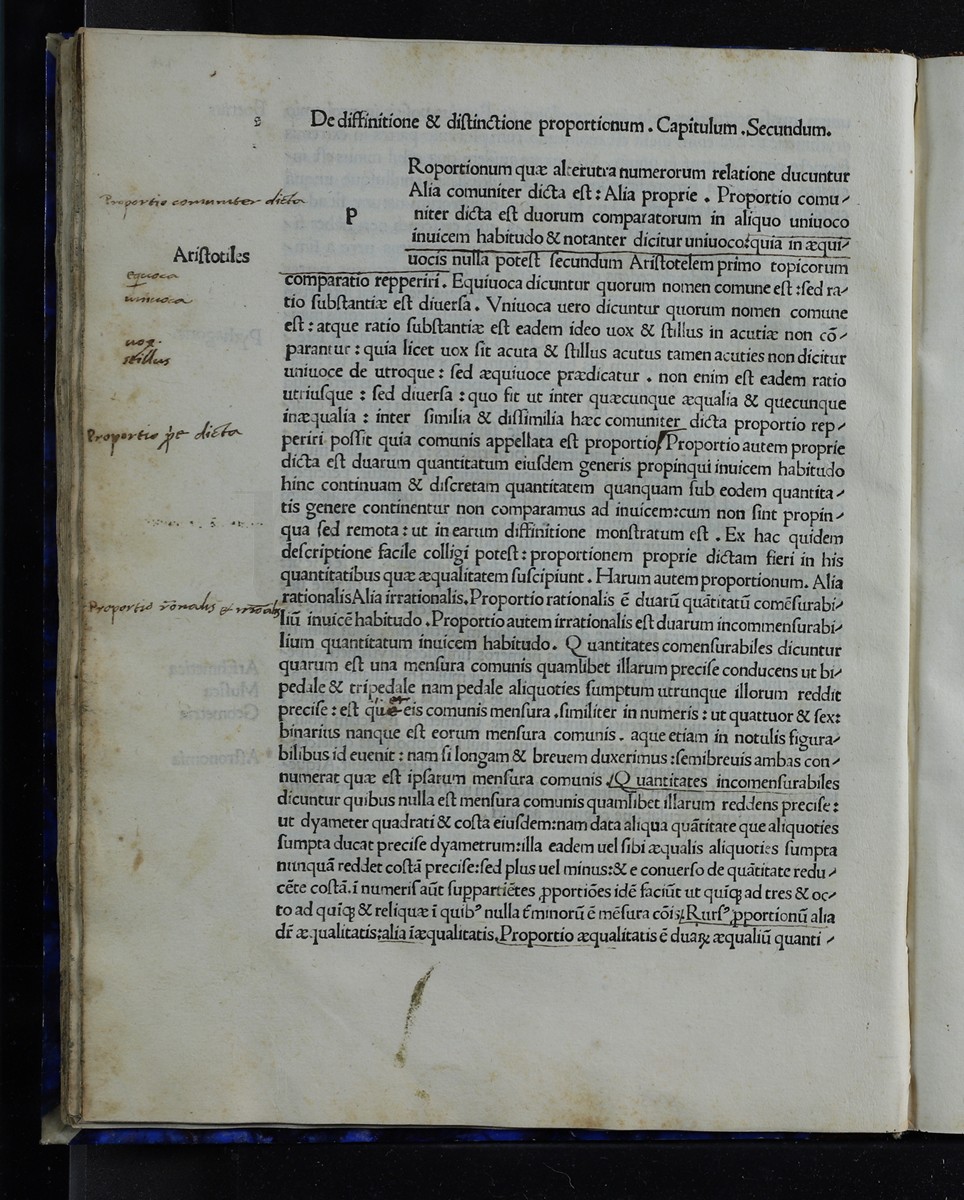 De diffinitione & diſtinctione proportionum . Capitulum .Secundum.
P
Roportionum quæ alterutra numerorum relatione ducuntur
Alia comuniter dicta eſt : Alia proprie . Proportio comu-
niter dicta eſt duorum comparatorum in aliquo uniuoco
inuicem habitudo & notanter dicitur uniuoco:quia in æqui-
uocis nulla poteſt ſecundum Ariſtotelem primo topicorum
comparatio repperiri . Equiuoca dicuntur quorum nomen comune eſt :ſed ra-
tio ſubſtantiæ eſt diuerſa . Vniuoca uero dicuntur quorum nomen comune
eſt : atque ratio ſubſtantiæ eſt eadem ideo uox & ſtillus in acutiæ non cō-
parantur : quia licet uox ſit acuta & ſtillus acutus tamen acuties non dicitur
uniuoce de utroque : ſed æquiuoce prædicatur . non enim eſt eadem ratio
utriuſque : ſed diuerſa : quo fit ut inter quæcunque æqualia & quecunque
inæqualia : inter ſimilia & diſſimilia hæc comuniter dicta proportio rep-
periri poſſit quia comunis appellata eſt proportio. Proportio autem proprie
dicta eſt duarum quantitatum eiuſdem generis propinqui inuicem habitudo
hinc continuam & diſcretam quantitatem quanquam ſub eodem quantita-
tis genere continentur non comparamus ad inuicem:cum non ſint propin-
qua ſed remota : ut in earum diffinitione monſtratum eſt . Ex hac quidem
deſcriptione facile colligi poteſt : proportionem proprie dictam fieri in his
quantitatibus quæ æqualitatem ſuſcipiunt . Harum autem proportionum. Alia
rationalis Alia irrationalis. Proportio rationalis ē duarū quātitatū comēſurabi-
liū inuicē habitudo .Proportio autem irrationalis eſt duarum incommenſurabi-
lium quantitatum inuicem habitudo. Quantitates comenſurabiles dicuntur
quarum eſt una menſura comunis quamlibet illarum preciſe conducens ut bi-
pedale & tripedale nam pedale aliquoties ſumptum utrunque illorum reddit
preciſe : eſt que eis comunis menſura .ſimiliter in numeris : ut quattuor & ſex:
binarius nanque eſt eorum menſura comunis . aque etiam in notulis figura-
bilibus id euenit : nam ſi longam & breuem duxerimus :ſemibreuis ambas con-
numerat quæ eſt ipſarum menſura comunis . Quantitates incomenſurabiles
dicuntur quibus nulla eſt menſura comunis quamlibet illarum reddens preciſe :
ut dyameter quadrati & coſta eiuſdem:nam data aliqua quātitate que aliquoties
ſumpta ducat preciſe dyametrum:illa eadem uel ſibi æqualis aliquoties ſumpta
nunquā reddet coſtā preciſe:ſed plus uel minus:& e conuerſo de quātitate redu-
cēte coſtā.ī numeriſ aūt ſuppartiētes ꝓportiōes idē faciūt ut quīqꝫ ad tres & oc-
to ad quīqꝫ & reliquæ ī quibꝰ nulla t̄minorū ē mēſura cōis. Rurſꝰ ꝓportionū alia
dr̄ æqualitatis:alia īæqualitatis. Proportio æqualitatis ē duaꝝ æqualiū quanti-
Proportio comuniter dicta
Ariſtotiles
equoca
uniuoca
uox.
stillus
Proportio ꝓpe dicta
Proportio rōnalis et irrōalis